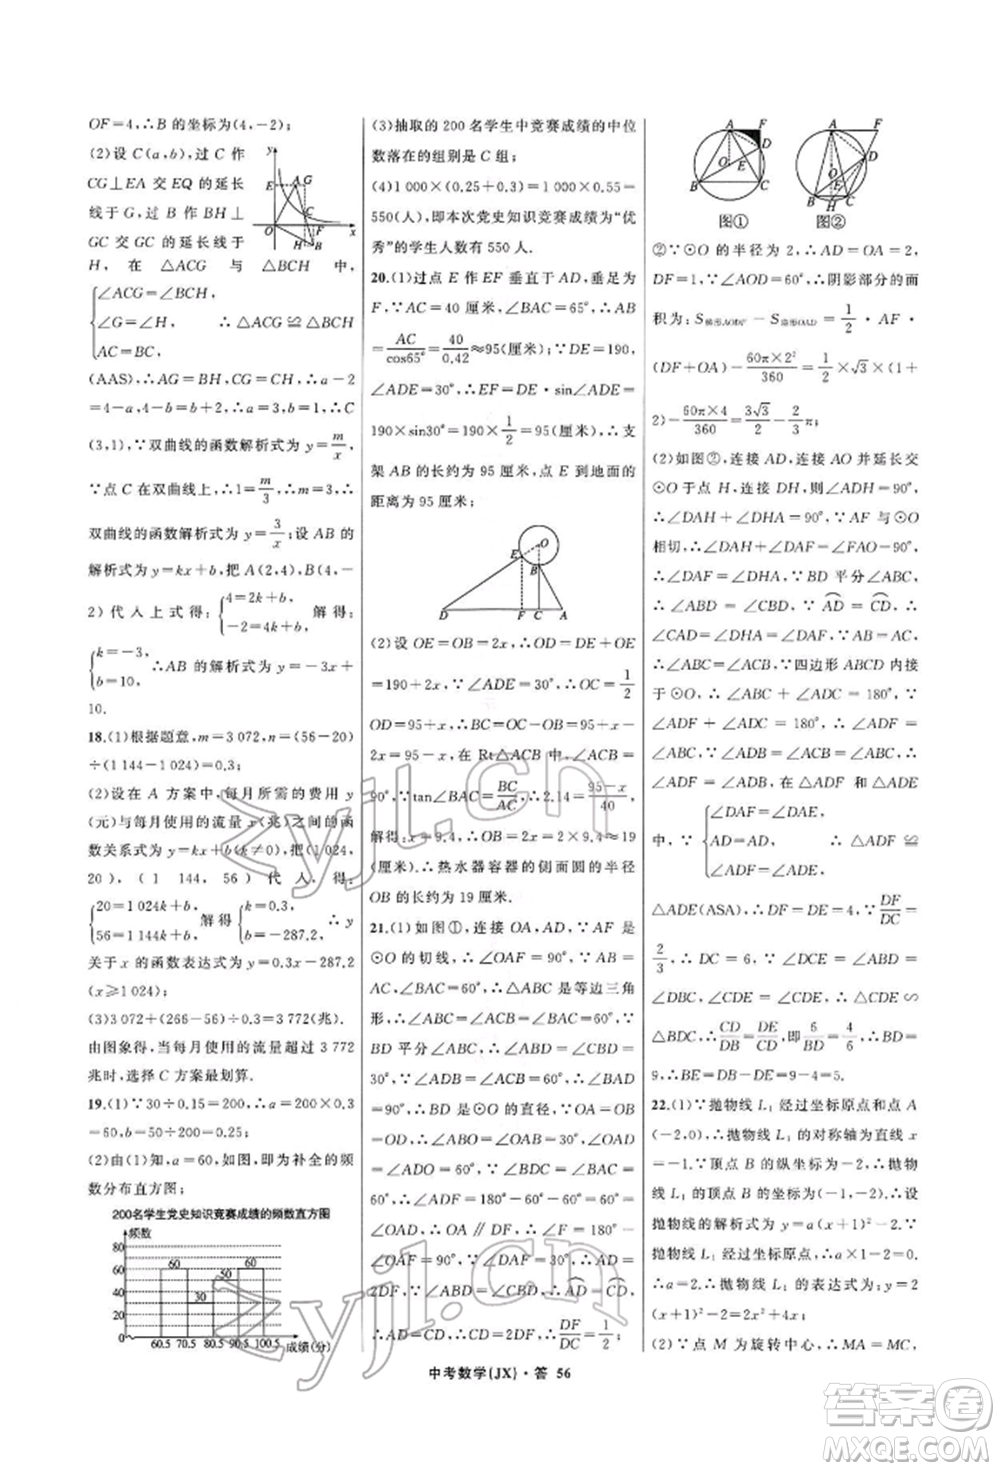 OF=4,∴B的坐标为(4,-2);
(2)设 C(a,b),过 C 作
CG⊥EA 交 EQ 的延长
线于 G,过 B 作 BH⊥
GC 交 GC 的延长线于
H, 在 △ACG 与 △BCH 中,
∠ACG=∠BCH,
∠G=∠H, ∴△ACG≌△BCH
AC=BC,
(AAS),∴AG=BH,CG=CH,∴a-2
=4-a,4-b=b+2,∴a=3,b=1,∴C
(3,1),∵双曲线的函数解析式为 y=m/x,
∵点 C 在双曲线上,∴1=m/3,∴m=3,∴
双曲线的函数解析式为 y=3/x;设 AB 的
解析式为 y=kx+b,把 A(2,4),B(4,-
2)代入上式得:{4=2k+b, -2=4k+b, 解得:
{k=-3, b=10, ∴AB 的解析式为 y=-3x+
10.
18.(1)根据题意,m=3 072,n=(56-20)
÷(1 144-1 024)=0.3;
(2)设在 A 方案中,每月所需的费用 y
(元)与每月使用的流量 x(兆)之间的函
数关系式为 y=kx+b(k≠0),把(1 024,
20),(1 144,56)代入,得
{20=1 024k+b, 56=1 144k+b, 解得 {k=0.3, b=-287.2, ∴y
关于 x 的函数表达式为 y=0.3x-287.2
(x≥1 024);
(3)3 072+(266-56)÷0.3=3 772(兆).
由图象得,当每月使用的流量超过 3 772
兆时,选择 C 方案最划算.
19.(1)∵30÷0.15=200,∴a=200×0.3
=60,b=50÷200=0.25;
(2)由(1)知,a=60,如图,即为补全的频
数分布直方图;
200名学生党史知识竞赛成绩的频数直方图
频数
80
60
40
20
0
60 30 50 60
60.5 70.5 80.5 90.5 100.5 成绩(分)
(3)抽取的 200 名学生中竞赛成绩的中位
数落在的组别是 C 组;
(4)1 000×(0.25+0.3)=1 000×0.55=
550(人),即本次党史知识竞赛成绩为“优
秀”的学生人数有 550 人.
20.(1)过点 E 作 EF 垂直于 AD,垂足为
F,∵AC=40 厘米,∠BAC=65°,∴AB
=AC/cos65°=40/0.42≈95(厘米);∵DE=190,
∠ADE=30°,∴EF=DE·sin∠ADE=
190×sin30°=190×1/2=95(厘米),∴支
架 AB 的长约为 95 厘米,点 E 到地面的
距离为 95 厘米;
E O B D F C A
(2)设 OE=OB=2x,∴OD=DE+OE
=190+2x,∵∠ADE=30°,∴OC=1/2
OD=95+x,∴BC=OC-OB=95+x-
2x=95-x,在 Rt△ACB 中,∠ACB=
90°,∵tan∠BAC=BC/AC,∴2.14=(95-x)/40,
解得:x=9.4,∴OB=2x=2×9.4≈19
(厘米)∴热水器容器的侧面圆的半径
OB 的长约为 19 厘米.
21.(1)①如图①,连接 OA,AD,∵AF 是
⊙O 的切线,∴∠OAF=90°,∵∠DAF=
30°,∴∠OAD=60°,∴△AOD是等边三角
形,∴∠AOD=60°,∴∠ABD=30°,∵
BD 平分∠ABC,∴∠ABC=60°,∵∠BAD
=90°,∴BD 是⊙O 的直径,∵OA=OB
=OD,∴∠ABO=∠OAB=30°,∠BAC
=180°-60°-60°=60°,∴∠BAC=
∠OAD,∴AO∥DF,∴∠F=180°-
∠OAF=90°,∵∠DAF=30°,∴AD=
2DF,∵∠ABD=∠CBD,∴AD=CD,
∴AD=CD,∴CD=2DF,∴DF/DC=1/2;
A F O D E B C
图①
A F O D E B H C
图②
②∵⊙O 的半径为 2,∴AD=OA=2,
DF=1,∵∠AOD=60°,∴阴影部分的面
积为:S梯形AODF-S扇形OAD=1/2·AF·
(DF+OA)-60π×2²/360=1/2×√3×(1+
2)-60π×4/360=3√3/2-2/3π;
(2)如图②,连接 AD,连接 AO 并延长交
⊙O 于点 H,连接 DH,则∠ADH=90°,
∴∠DAH+∠DHA=90°,∵AF 与⊙O
相切,∴∠DAH+∠DAF=∠FAO=90°,
∴∠DAF=∠DHA,∵BD 平分∠ABC,
∴∠ABD=∠CBD,∵AD=CD,∴
∠CAD=∠DHA=∠DAF,∵AB=AC,
∴∠ABC=∠ACB,∵四边形 ABCD 内接
于⊙O,∴∠ABC+∠ADC=180°,∵
∠ADF+∠ADC=180°,∴∠ADF=
∠ABC,∵∠ADB=∠ACB=∠ABC,
∴∠ADF=∠ADB,在△ADF 和△ADE
中,∵{∠DAF=∠DAE, AD=AD, ∠ADF=∠ADE, ∴△ADF≌
△ADE(ASA),∴DF=DE=4,∵DF/DC=
2/3,∴DC=6,∵∠DCE=∠ABD=
∠DBC,∠CDE=∠CDE,∴△CDE∽
△BDC,∴CD/DB=DE/CD,即6/BD=4/6,∴BD=
9,∴BE=DB-DE=9-4=5.
22.(1)∵抛物线 L₁ 经过坐标原点和点 A
(-2,0),∴抛物线 L₁ 的对称轴为直线 x
=-1,∵抛物线 L₁ 的顶点的纵坐标为-2,
∴抛物线 L₁ 的顶点坐标为(-1,-2),∴设
抛物线的解析式为 y=a(x+1)²-2,∵
抛物线 L₁ 经过坐标原点,∴a-2=0,
∴a=2,∴抛物线 L₁ 的表达式为:y=2
(x+1)²-2=2x²+4x;
(2)∵点 M 为旋转中心,∴MA=MC,
中考数学(JX)·答 56
zyjl.cn
zyjl.cn
答案圈
MXQE.COM